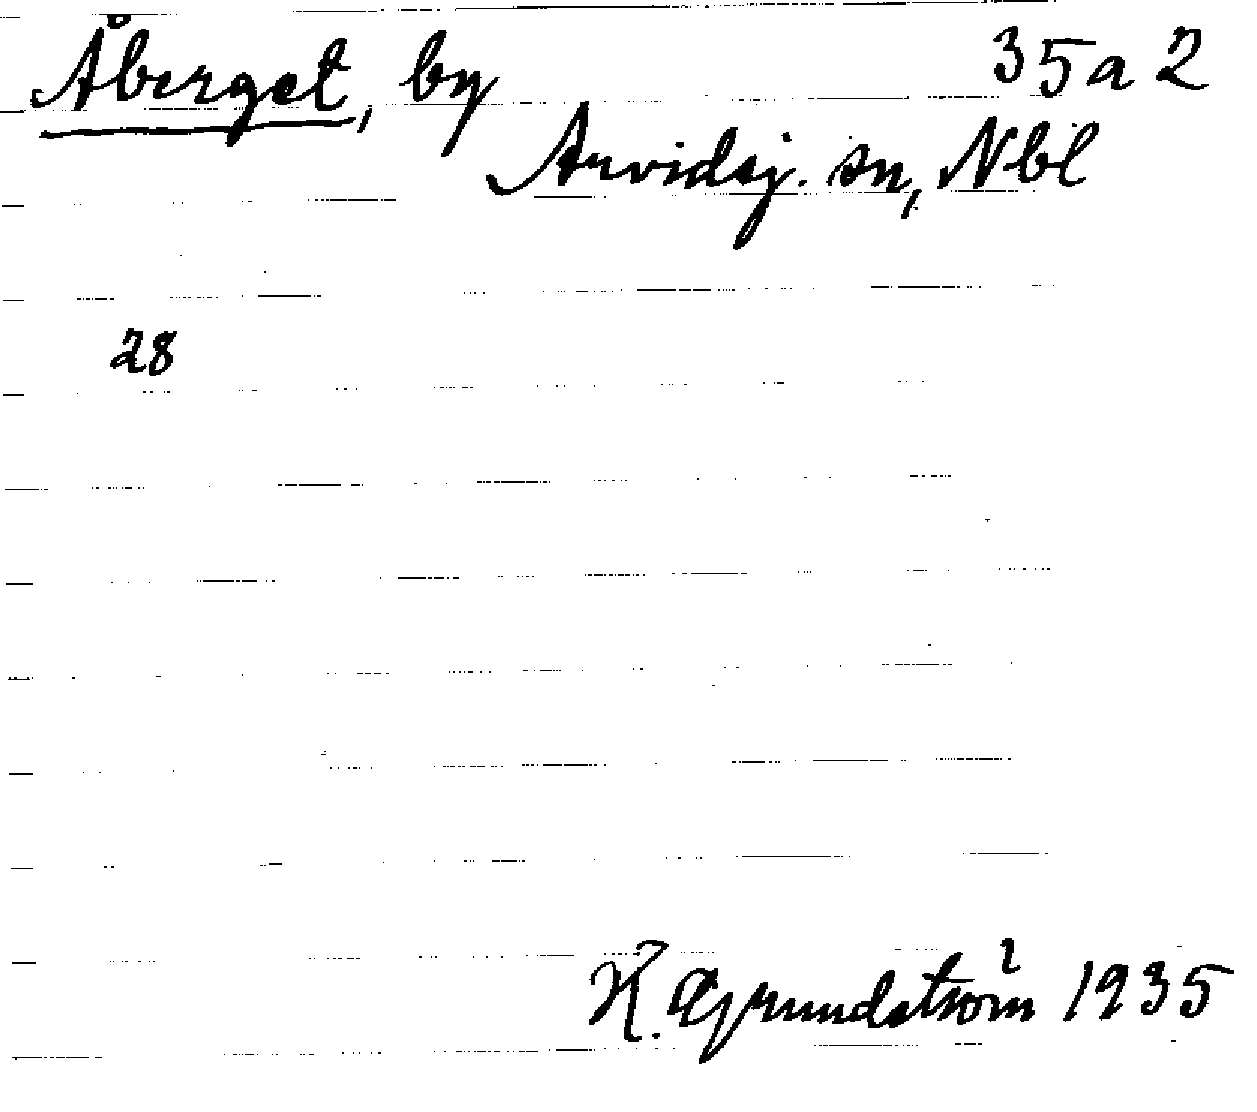 Åberget, by 35a2
Arvidsj. sn, Nbl
28
H. Grundström 1935